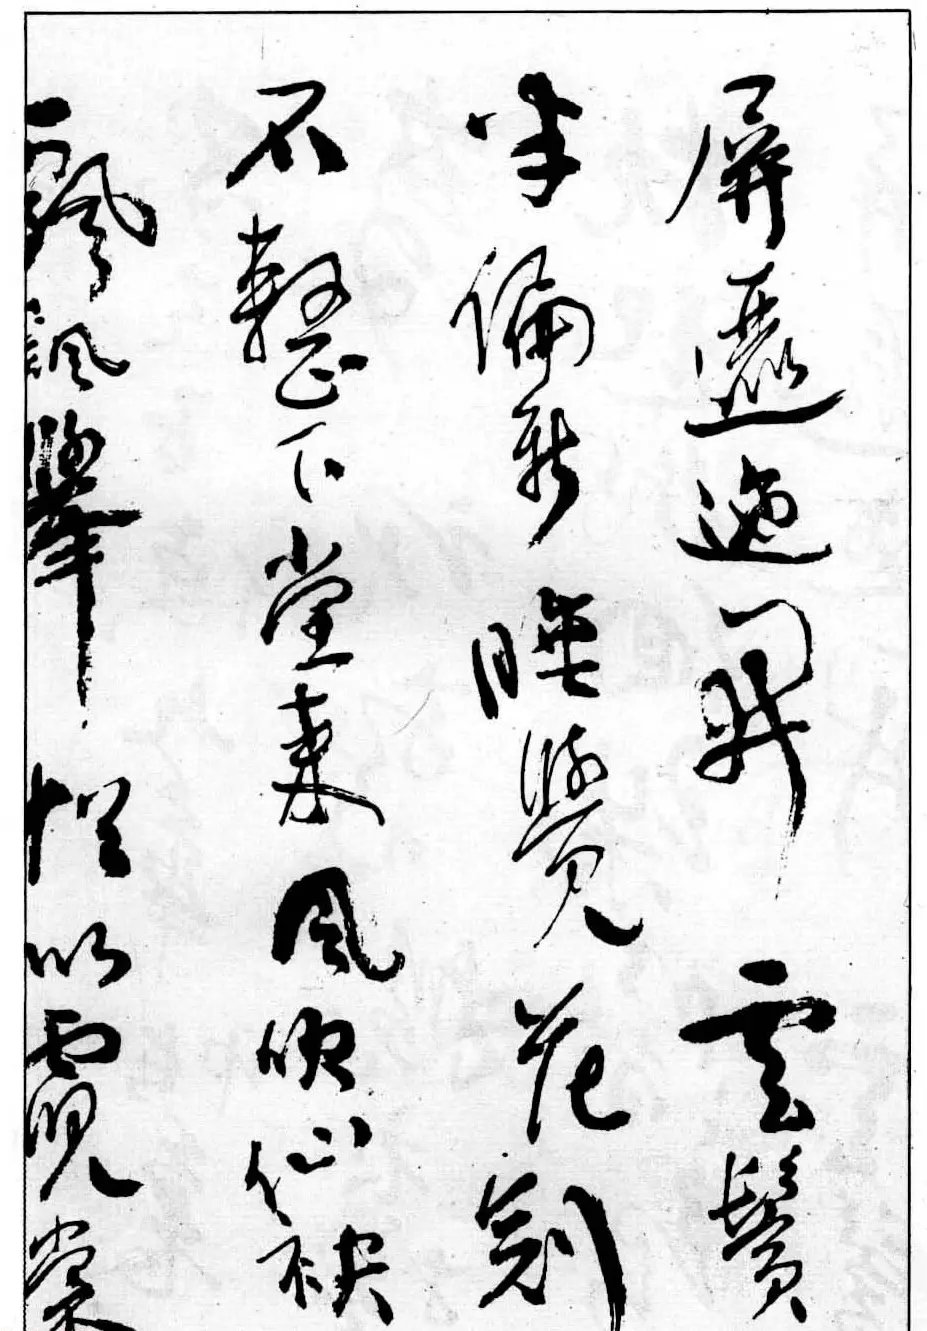 屏邐迤開雲鬢
半偏新睡覺花冠
不整下堂來風吹仙袂
飄颻舉猶似霓裳